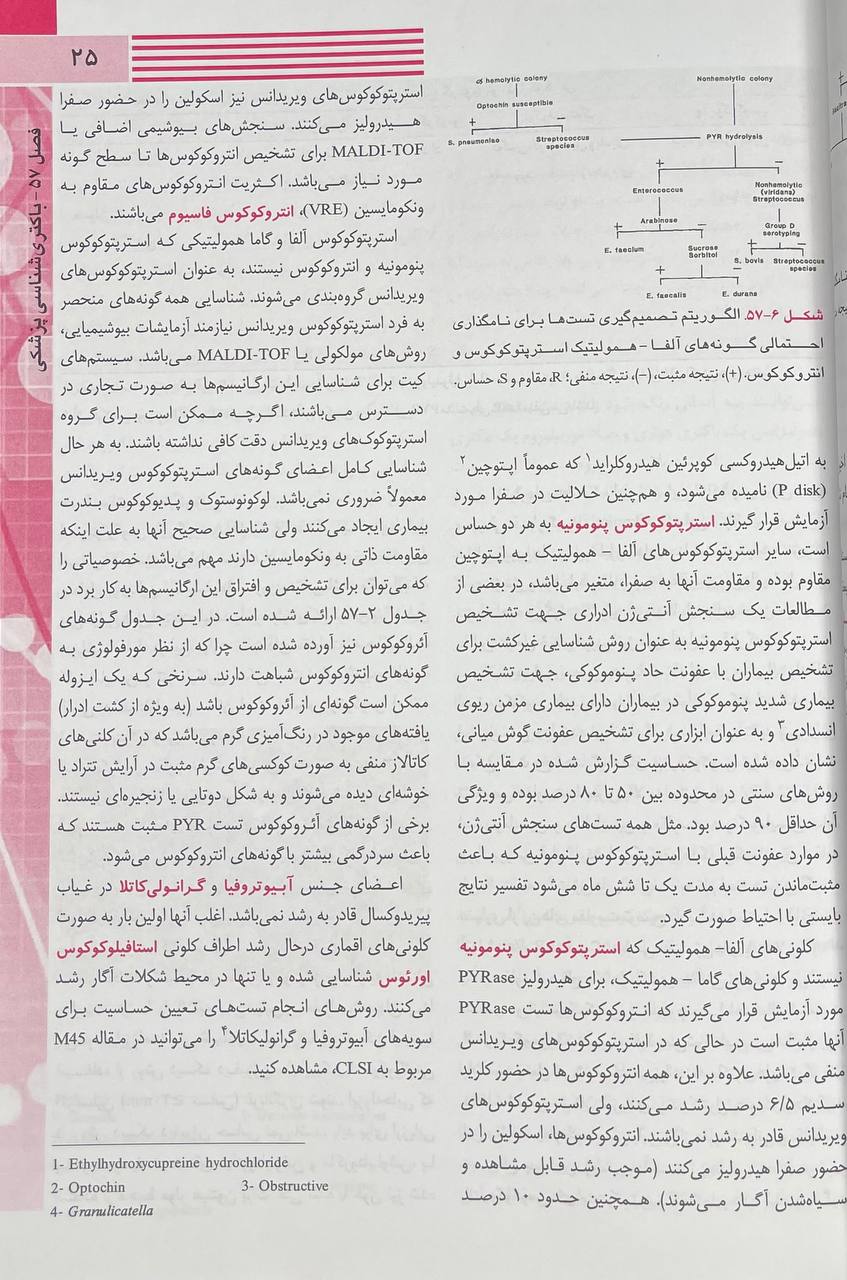 ۲۵
فصل ۵۷ - باکتری‌شناسی پزشکی
α hemolytic colony
Optochin susceptible
+ −
S. pneumoniae
Streptococcus species
Nonhemolytic colony
PYR hydrolysis
+ −
Enterococcus
Nonhemolytic (viridans) Streptococcus
Arabinose
Group D serotyping
+ −
+ −
E. faecium
Sucrose Sorbitol
S. bovis
Streptococcus species
+ −
E. faecalis
E. durans
شکل ۶-۵۷. الگوریتم تصمیم‌گیری تست‌ها برای نامگذاری
احتمالی گونه‌های آلفا - همولیتیک استرپتوکوکوس و
انتروکوکوس. (+)، نتیجه مثبت، (−)، نتیجه منفی؛ R، مقاوم و S، حساس.
به اتیل‌هیدروکسی کوپرئین هیدروکلراید۱ که عموماً اپتوچین۲
(P disk) نامیده می‌شود، و همچنین حلالیت در صفرا مورد
آزمایش قرار گیرند. استرپتوکوکوس پنومونیه به هر دو حساس
است، سایر استرپتوکوکوس‌های آلفا - همولیتیک به اپتوچین
مقاوم بوده و مقاومت آنها به صفرا، متغیر می‌باشد، در بعضی از
مطالعات یک سنجش آنتی‌ژن ادراری جهت تشخیص
استرپتوکوکوس پنومونیه به عنوان روش شناسایی غیرکشت برای
تشخیص بیماران با عفونت حاد پنوموکوکی، جهت تشخیص
بیماری شدید پنوموکوکی در بیماران دارای بیماری مزمن ریوی
انسدادی۳ و به عنوان ابزاری برای تشخیص عفونت گوش میانی،
نشان داده شده است. حساسیت گزارش شده در مقایسه با
روش‌های سنتی در محدوده بین ۵۰ تا ۸۰ درصد بوده و ویژگی
آن حداقل ۹۰ درصد بود. مثل همه تست‌های سنجش آنتی‌ژن،
در موارد عفونت قبلی با استرپتوکوکوس پنومونیه که باعث
مثبت‌ماندن تست به مدت یک تا شش ماه می‌شود تفسیر نتایج
بایستی با احتیاط صورت گیرد.
کلونی‌های آلفا- همولیتیک که استرپتوکوکوس پنومونیه
نیستند و کلونی‌های گاما - همولیتیک، برای هیدرولیز PYRase
مورد آزمایش قرار می‌گیرند که انتروکوکوس‌ها تست PYRase
آنها مثبت است در حالی که در استرپتوکوکوس‌های ویریدانس
منفی می‌باشد. علاوه بر این، همه انتروکوکوس‌ها در حضور کلرید
سدیم ۶/۵ درصد رشد می‌کنند، ولی استرپتوکوکوس‌های
ویریدانس قادر به رشد نمی‌باشند. انتروکوکوس‌ها، اسکولین را در
حضور صفرا هیدرولیز می‌کنند (موجب رشد قابل مشاهده و
سیاه‌شدن آگار می‌شوند). همچنین حدود ۱۰ درصد
استرپتوکوکوس‌های ویریدانس نیز اسکولین را در حضور صفرا
هیدرولیز می‌کنند. سنجش‌های بیوشیمی اضافی یا
MALDI-TOF برای تشخیص انتروکوکوس‌ها تا سطح گونه
مورد نیاز می‌باشد. اکثریت انتروکوکوس‌های مقاوم به
ونکومایسین (VRE)، انتروکوکوس فاسیوم می‌باشند.
استرپتوکوکوس آلفا و گاما همولیتیکی که استرپتوکوکوس
پنومونیه و انتروکوکوس نیستند، به عنوان استرپتوکوکوس‌های
ویریدانس گروه‌بندی می‌شوند. شناسایی همه گونه‌های منحصر
به فرد استرپتوکوکوس ویریدانس نیازمند آزمایشات بیوشیمیایی،
روش‌های مولکولی یا MALDI-TOF می‌باشد. سیستم‌های
کیت برای شناسایی این ارگانیسم‌ها به صورت تجاری در
دسترس می‌باشند، اگرچه ممکن است برای گروه
استرپتوکوک‌های ویریدانس دقت کافی نداشته باشند. به هر حال
شناسایی کامل اعضای گونه‌های استرپتوکوکوس ویریدنس
معمولاً ضروری نمی‌باشد. لوکونوستوک و پدیوکوکوس بندرت
بیماری ایجاد می‌کنند ولی شناسایی صحیح آنها به علت اینکه
مقاومت ذاتی به ونکومایسین دارند مهم می‌باشد. خصوصیاتی را
که می‌توان برای تشخیص و افتراق این ارگانیسم‌ها به کار برد در
جدول ۲-۵۷ ارائه شده است. در این جدول گونه‌های
آئروکوکوس نیز آورده شده است چرا که از نظر مورفولوژی به
گونه‌های انتروکوکوس شباهت دارند. سرنخی که یک ایزوله
ممکن است گونه‌ای از آئروکوکوس باشد (به ویژه از کشت ادرار)
یافته‌های موجود در رنگ‌آمیزی گرم می‌باشد که در آن کلنی‌های
کاتالاز منفی به صورت کوکسی‌های گرم مثبت در آرایش تتراد یا
خوشه‌ای دیده می‌شوند و به شکل دوتایی یا زنجیره‌ای نیستند.
برخی از گونه‌های آئروکوکوس تست PYR مثبت هستند که
باعث سردرگمی بیشتر با گونه‌های انتروکوکوس می‌شود.
اعضای جنس آبیوتروفیا و گرانولی‌کاتلا در غیاب
پیریدوکسال قادر به رشد نمی‌باشد. اغلب آنها اولین بار به صورت
کلونی‌های اقماری درحال رشد اطراف کلونی استافیلوکوکوس
اورئوس شناسایی شده و یا تنها در محیط شکلات آگار رشد
می‌کنند. روش‌های انجام تست‌های تعیین حساسیت برای
سویه‌های آبیوتروفیا و گرانولیکاتلا۴ را می‌توانید در مقاله M45
مربوط به CLSI، مشاهده کنید.
1- Ethylhydroxycupreine hydrochloride
2- Optochin 3- Obstructive
4- Granulicatella